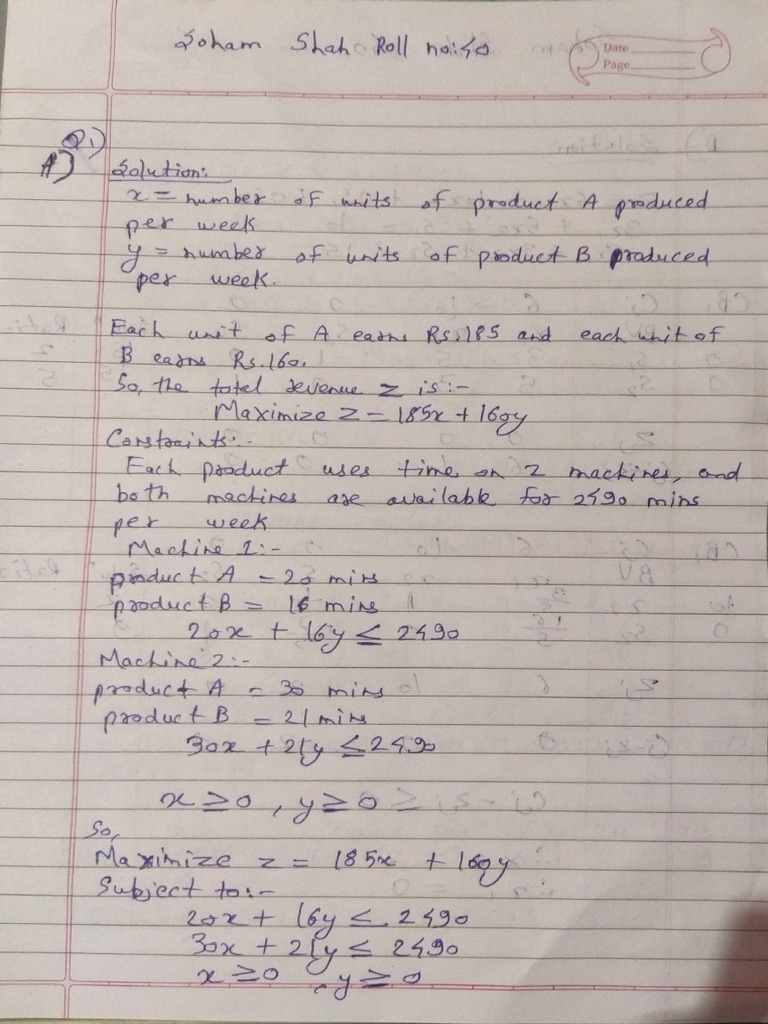 Soham Shah Roll no:40
Date
Page
Q1)
A) Solution:
x = number of units of product A produced
per week
y = number of units of product B produced
per week.
Each unit of A earns Rs.185 and each unit of
B earns Rs.160.
So, the total revenue z is:-
Maximize z = 185x + 160y
Constraints:-
Each product uses time on 2 machines, and
both machines are available for 2490 mins
per week
Machine 1:-
product A = 20 mins
product B = 16 mins
20x + 16y ≤ 2490
Machine 2:-
product A = 30 mins
product B = 21 mins
30x + 21y ≤ 2490
x ≥ 0 , y ≥ 0
So,
Maximize z = 185x + 160y
Subject to:-
20x + 16y ≤ 2490
30x + 21y ≤ 2490
x ≥ 0 , y ≥ 0